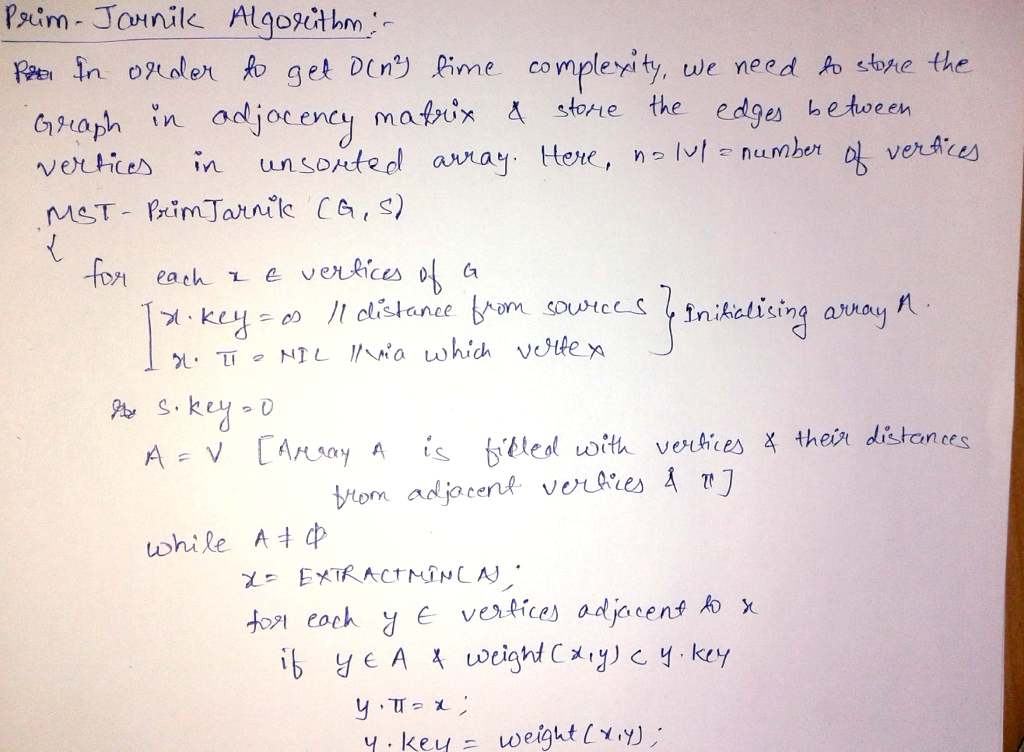 Prim-Jarnik Algorithm:-
In order to get O(n²) time complexity, we need to store the
Graph in adjacency matrix & store the edges between
vertices in unsorted array. Here, n=|V|=number of vertices
MST-PrimJarnik (G,S)
{
for each x ∈ vertices of G
x.key=∞ // distance from sources } Initialising array A.
x.π = NIL // via which vertex
S.key=0
A = V [Array A is filled with vertices & their distances
from adjacent vertices & π]
while A ≠ φ
x = EXTRACTMIN(A);
for each y ∈ vertices adjacent to x
if y ∈ A & weight(x,y) < y.key
y.π=x;
y.key = weight(x,y);